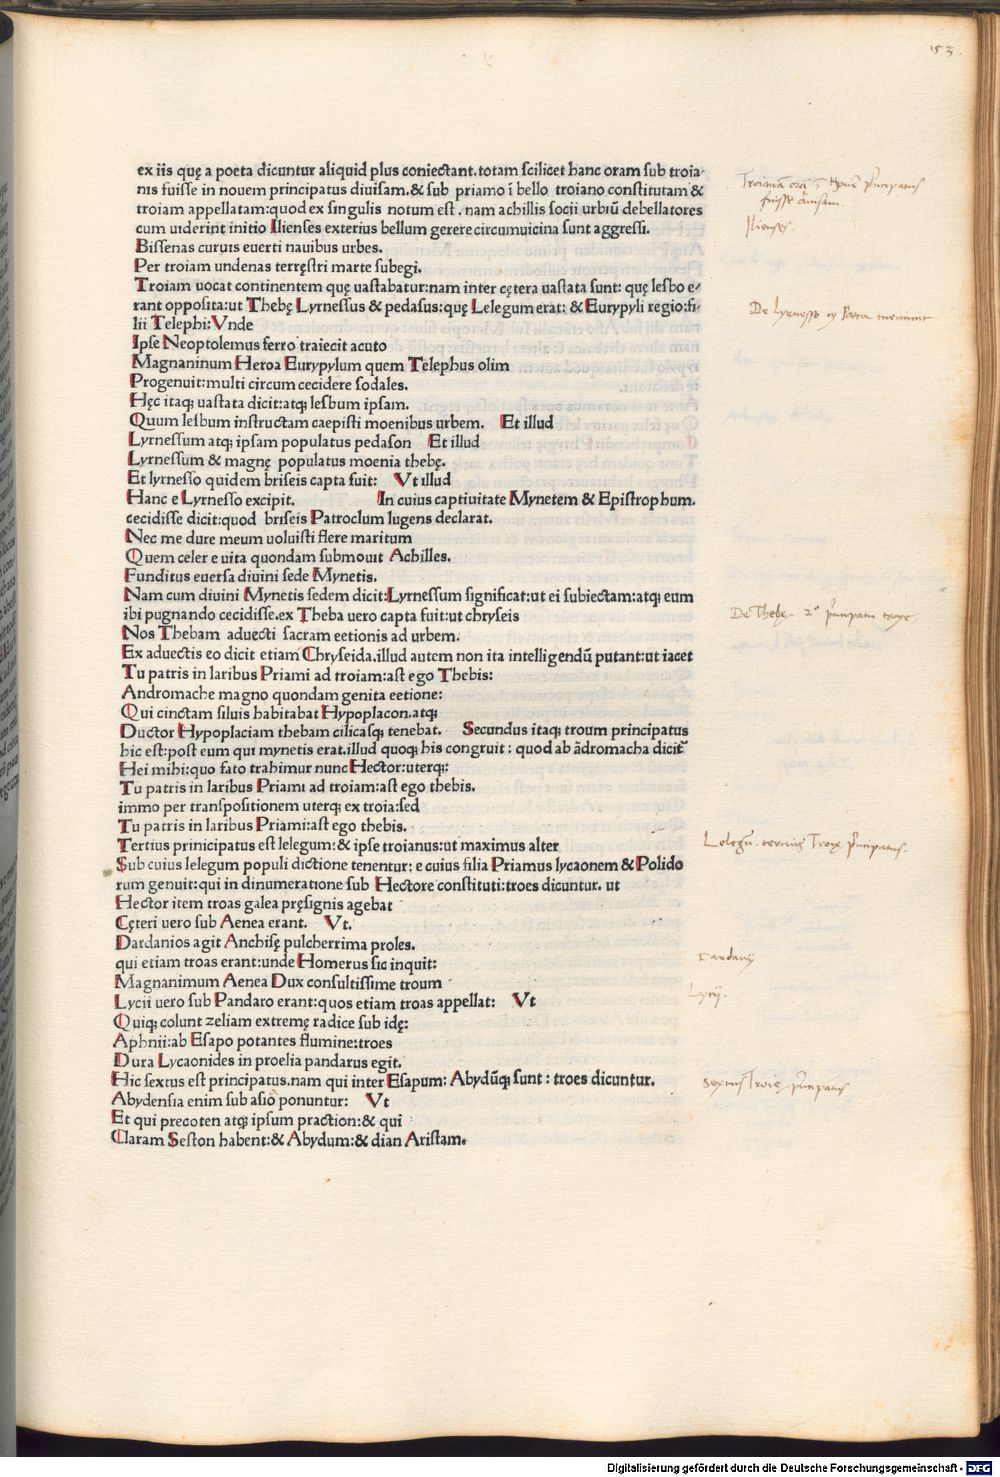 153.
ex iis quę a poeta dicuntur aliquid plus coniectant. totam scilicet hanc oram sub troia-
nis fuisse in nouem principatus diuisam. & sub priamo ī bello troiano constitutam &
troiam appellatam: quod ex singulis notum est. nam achillis socii urbiū debellatores
cum uiderint initio Ilienses exterius bellum gerere circumuicina sunt aggressi.
Bissenas curuis euerti nauibus urbes.
Per troiam undenas terręstri marte subegi.
Troiam uocat continentem quę uastabatur: nam inter cętera uastata sunt: quę lesbo e-
rant opposita: ut Thebę Lyrnessus & pedasus: quę Lelegum erat: & Eurypyli regio: fi-
lii Telephi: Vnde
Ipse Neoptolemus ferro traiecit acuto
Magnaninum Heroa Eurypylum quem Telephus olim
Progenuit: multi circum cecidere sodales.
Hęc itaq; uastata dicit: atq; lesbum ipsam.
Quum lesbum instructam caepisti moenibus urbem. Et illud
Lyrnessum atq; ipsam populatus pedason Et illud
Lyrnessum & magnę populatus moenia thebę.
Et lyrnesso quidem briseis capta fuit: Vt illud
Hanc e Lyrnesso excipit. In cuius captiuitate Mynetem & Epistrophum.
cecidisse dicit: quod briseis Patroclum lugens declarat.
Nec me dure meum uoluisti flere maritum
Quem celer e uita quondam submouit Achilles.
Funditus euersa diuini sede Mynetis.
Nam cum diuini Mynetis sedem dicit: Lyrnessum significat: ut ei subiectam: atq; eum
ibi pugnando cecidisse. ex Theba uero capta fuit: ut chryseis
Nos Thebam aduecti sacram eetionis ad urbem.
Ex aduectis eo dicit etiam Chryseida. illud autem non ita intelligendū putant: ut iacet
Tu patris in laribus Priami ad troiam: ast ego Thebis:
Andromache magno quondam genita eetione:
Qui cinctam siluis habitabat Hypoplacon. atq;
Ductor Hypoplaciam thebam cilicasq; tenebat. Secundus itaq; troum principatus
hic est: post eum qui mynetis erat. illud quoq; his congruit: quod ab ādromacha dicit
Hei mihi: quo fato trahimur nunc Hector: uterq;:
Tu patris in laribus Priami ad troiam: ast ego thebis.
immo per transpositionem uterq; ex troia: sed
Tu patris in laribus Priami: ast ego thebis.
Tertius prinicipatus est lelegum: & ipse troianus: ut maximus alter
Sub cuius lelegum populi dictione tenentur: e cuius filia Priamus lycaonem & Polido
rum genuit: qui in dinumeratione sub Hectore constituti: troes dicuntur. ut
Hector item troas galea pręsignis agebat
Cęteri uero sub Aenea erant. Vt.
Dardanios agit Anchisę pulcherrima proles.
qui etiam troas erant: unde Homerus sic inquit:
Magnanimum Aenea Dux consultissime troum
Lycii uero sub Pandaro erant: quos etiam troas appellat: Vt
Quiq; colunt zeliam extremę radice sub idę:
Aphnii: ab Esapo potantes flumine: troes
Dura Lycaonides in proelia pandarus egit.
Hic sextus est principatus. nam qui inter Esapum: Abydūq; sunt: troes dicuntur.
Abydensia enim sub asio ponuntur: Vt
Et qui precoten atq; ipsum praction: & qui
Claram Seston habent: & Abydum: & dian Aristam.
principatus
fuisse diuisam.
Ilienses.
De lyrnesso
De Thebę. 2° principatu troye.
Lelegū. tertius Troię principatus.
Dardanij
Lycij.
Sextus Troię principatus
Digitalisierung gefördert durch die Deutsche Forschungsgemeinschaft - DFG